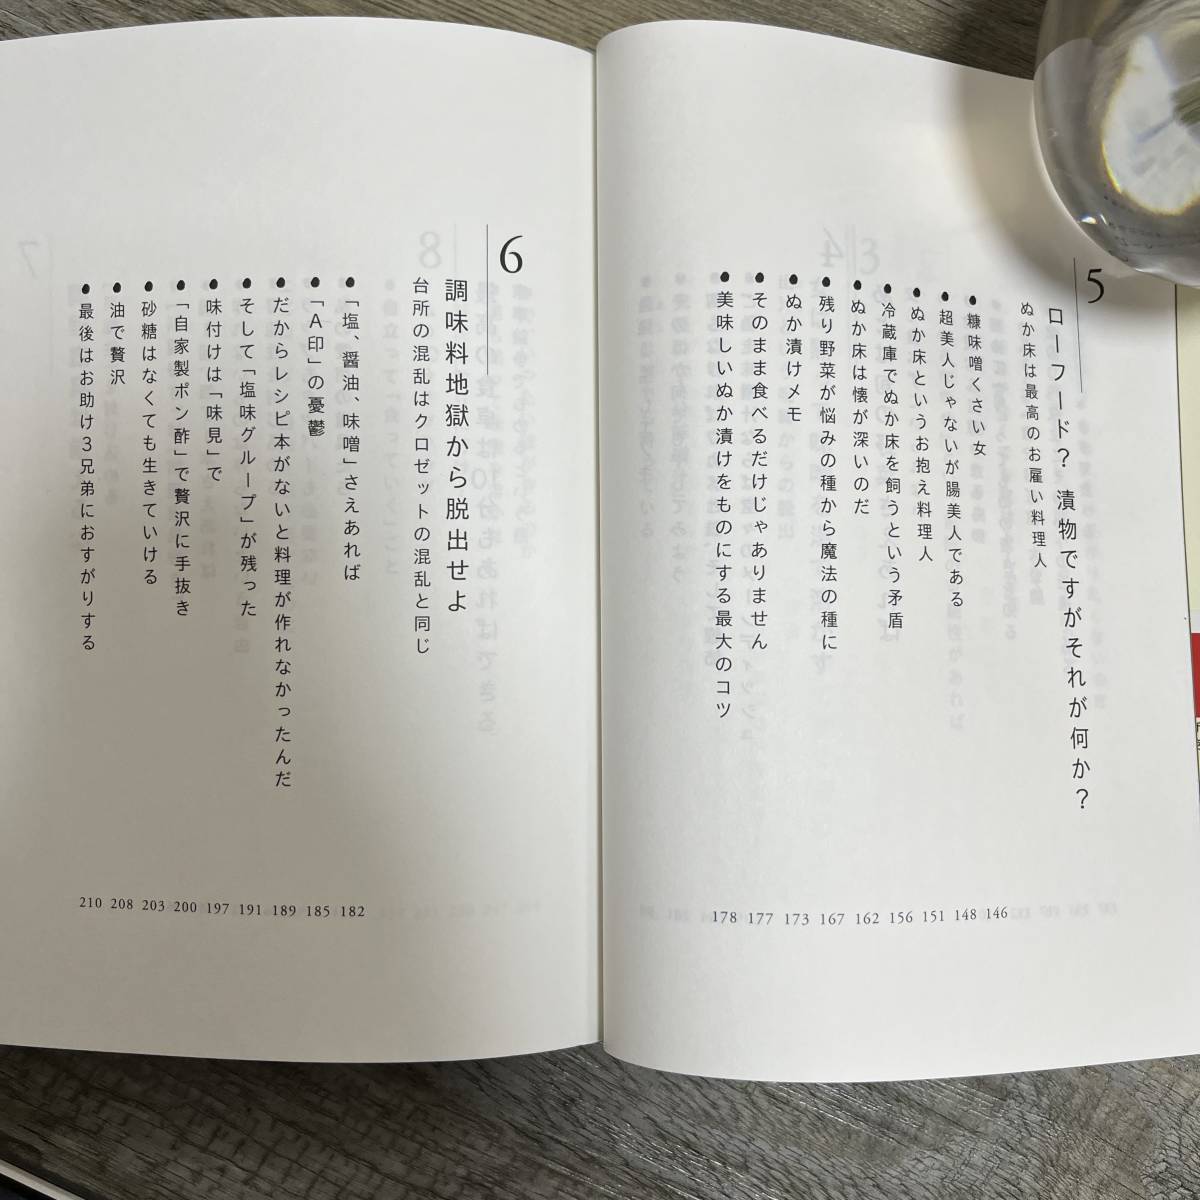 5
ローフード? 漬物ですがそれが何か?
ぬか床は最高のお雇い料理人
●糠味噌くさい女
●超美人じゃないが腸美人である
●ぬか床というお抱え料理人
●冷蔵庫でぬか床を飼うという矛盾
●ぬか床は懐が深いのだ
●残り野菜が悩みの種から魔法の種に
●ぬか漬けメモ
●そのまま食べるだけじゃありません
●美味しいぬか漬けをものにする最大のコツ
146
148
151
156
162
167
173
177
178
6
調味料地獄から脱出せよ
台所の混乱はクロゼットの混乱と同じ
●「塩、醤油、味噌」さえあれば
●「A印」の憂鬱
●だからレシピ本がないと料理が作れなかったんだ
●そして「塩味グループ」が残った
●味付けは「味見」で
●「自家製ポン酢」で贅沢に手抜き
●砂糖はなくても生きていける
●油で贅沢
●最後はお助け3兄弟におすがりする
182
185
189
191
197
200
203
208
210